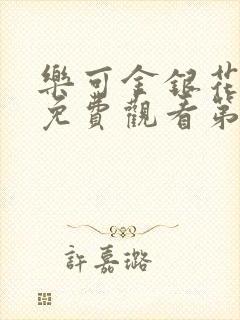 樂可金銀花
免費觀看第
許嘉璐